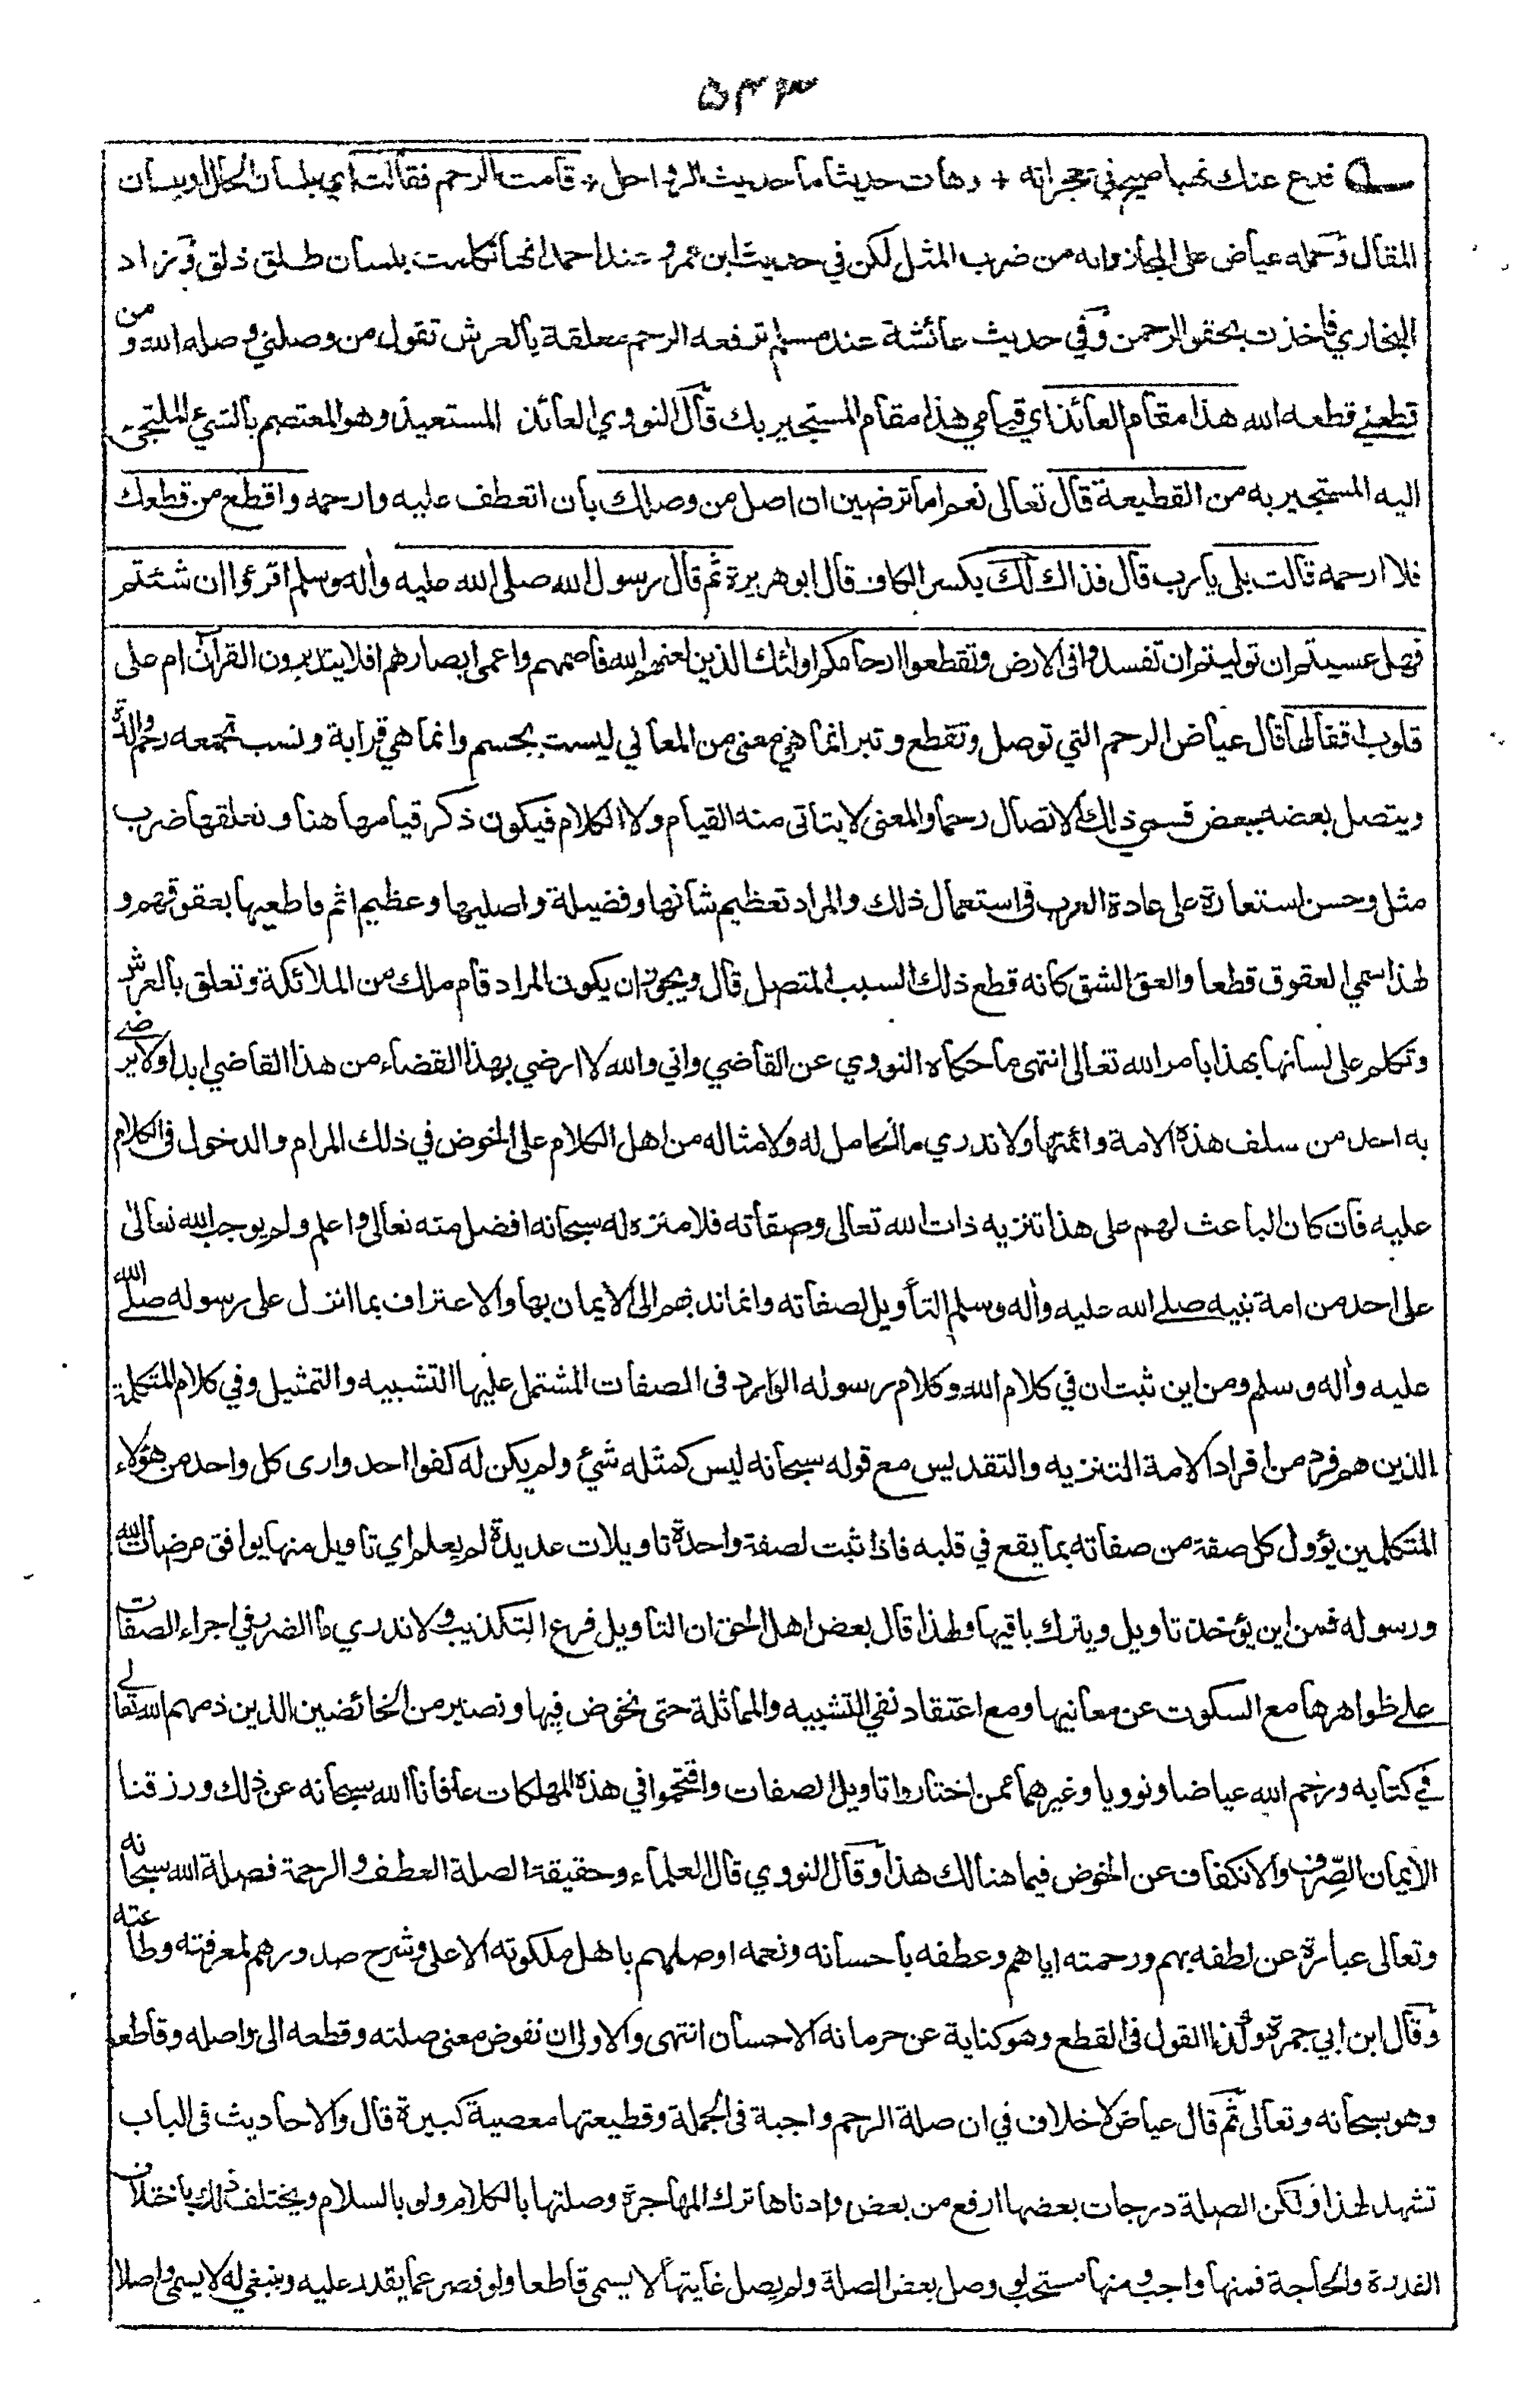 ٥٤٣
فدع عنك نهبا صيح في حجراته + وهات حديثا ما حديث الرواحل + قامت الرحم فقالت اي بلسان الحال او بلسان
المقال وحمله عياض على المجاز وانه من ضرب المثل لكن في حديث ابن عمرو عند احمد انها تكلمت بلسان طلق ذلق وزاد
البخاري فاخذت بحقو الرحمن وفي حديث عائشة عند مسلم ترفعه الرحم معلقة بالعرش تقول من وصلني وصله الله ومن
قطعني قطعه الله هذا مقام العائذ اي قيامي هذا مقام المستجير بك قال النووي العائذ المستعيذ وهو المعتصم بالشيء الملتجئ
اليه المستجير به من القطيعة قال تعالى نعم اما ترضين ان اصل من وصلك بأن اتعطف عليه وارحمه واقطع من قطعك
فلا ارحمه قالت بلى يا رب قال فذاك لك بكسر الكاف قال ابو هريرة ثم قال رسول الله صلى الله عليه وأله وسلم اقرءوا ان شئتم
فهل عسيتم ان توليتم ان تفسدوا في الارض وتقطعوا ارحامكم اولئك الذين لعنهم الله فاصمهم واعمى ابصارهم افلا يتدبرون القرآن ام على
قلوب اقفالها قال عياض الرحم التي توصل وتقطع وتبر انما هي معنى من المعاني ليست بجسم وانما هي قرابة ونسب تجمعه رحم والدة
ويتصل بعضه ببعض فسمي ذلك الاتصال رحما والمعنى لا يتاتى منه القيام ولا الكلام فيكون ذكر قيامها هنا وتعلقها ضرب
مثل وحسن استعارة على عادة العرب في استعمال ذلك والمراد تعظيم شانها وفضيلة واصليها وعظيم اثم قاطعيها بعقوقهم و
لهذا سمي العقوق قطعا والعق الشق كانه قطع ذلك السبب المتصل قال ويجوز ان يكون المراد قام ملك من الملائكة وتعلق بالعرش
وتكلم على لسانها بهذا بامر الله تعالى انتهى ما حكاه النووي عن القاضي واني والله لا ارضي بهذا القضاء من هذا القاضي ابدا ولا يرضى
به احد من سلف هذه الامة وائمتها ولا ندري ما الحامل له ولامثاله من اهل الكلام على الخوض في ذلك المرام والدخول في الكلام
عليه فان كان الباعث لهم على هذا تنزيه ذات الله تعالى وصفاته فلا منزه له سبحانه افضل منه تعالى واعلم ولم يوجب الله تعالى
على احد من امة نبيه صلى الله عليه وأله وسلم التأويل لصفاته وانما ندبهم الى الايمان بها والاعتراف بما انزل على رسوله صلى الله
عليه وأله وسلم ومن اين ثبت ان في كلام الله وكلام رسوله الوارد في الصفات المشتمل عليها التشبيه والتمثيل وفي كلام المتكلمة
الذين هم فرد من افراد الامة التنزيه والتقديس مع قوله سبحانه ليس كمثله شيئ ولم يكن له كفوا احد وارى كل واحد من هؤلاء
المتكلمين يؤول كل صفة من صفاته بما يقع في قلبه فاذا ثبت لصفة واحدة تاويلات عديدة لم يعلم اي تاويل منها يوافق مرضات الله
ورسوله فمن اين يؤخذ تاويل ويترك باقيها ولهذا قال بعض اهل الحق ان التاويل فرع التكذيب ولا ندري ما الضرر في اجراء الصفات
على ظواهرها مع السكوت عن معانيها ومع اعتقاد نفي التشبيه والمماثلة حتى نخوض فيها ونصير من الخائضين الذين ذمهم الله تعالى
في كتابه ورحم الله عياضا ونوويا وغيرهما ممن اختاروا تاويل الصفات واقتحموا في هذه المهلكات عافانا الله سبحانه عن ذلك ورزقنا
الايمان الصرف والانكفاف عن الخوض فيما هنالك هذا وقال النووي قال العلماء وحقيقة الصلة العطف والرحمة فصلة الله سبحانه
وتعالى عبارة عن لطفه بهم ورحمته اياهم وعطفه باحسانه ونعمه او صلتهم باهل ملكوته الاعلى وشرح صدورهم لمعرفته وطاعته
وقال ابن ابي جمرة وكذا القول في القطع وهو كناية عن حرمانه الاحسان انتهى والاولى ان نفوض معنى صلته وقطعه الى واصله وقاطعه
وهو سبحانه وتعالى ثم قال عياض لا خلاف في ان صلة الرحم واجبة في الجملة وقطيعتها معصية كبيرة قال والاحاديث في الباب
تشهد لهذا ولكن الصلة درجات بعضها ارفع من بعض وادناها ترك المهاجرة وصلتها بالكلام ولو بالسلام ويختلف ذلك باختلاف
القدرة والحاجة فمنها واجب ومنها مستحب لو وصل بعض الصلة ولم يصل غايتها لا يسمى قاطعا ولو قصر عما يقدر عليه وينبغي له لا يسمى واصلا